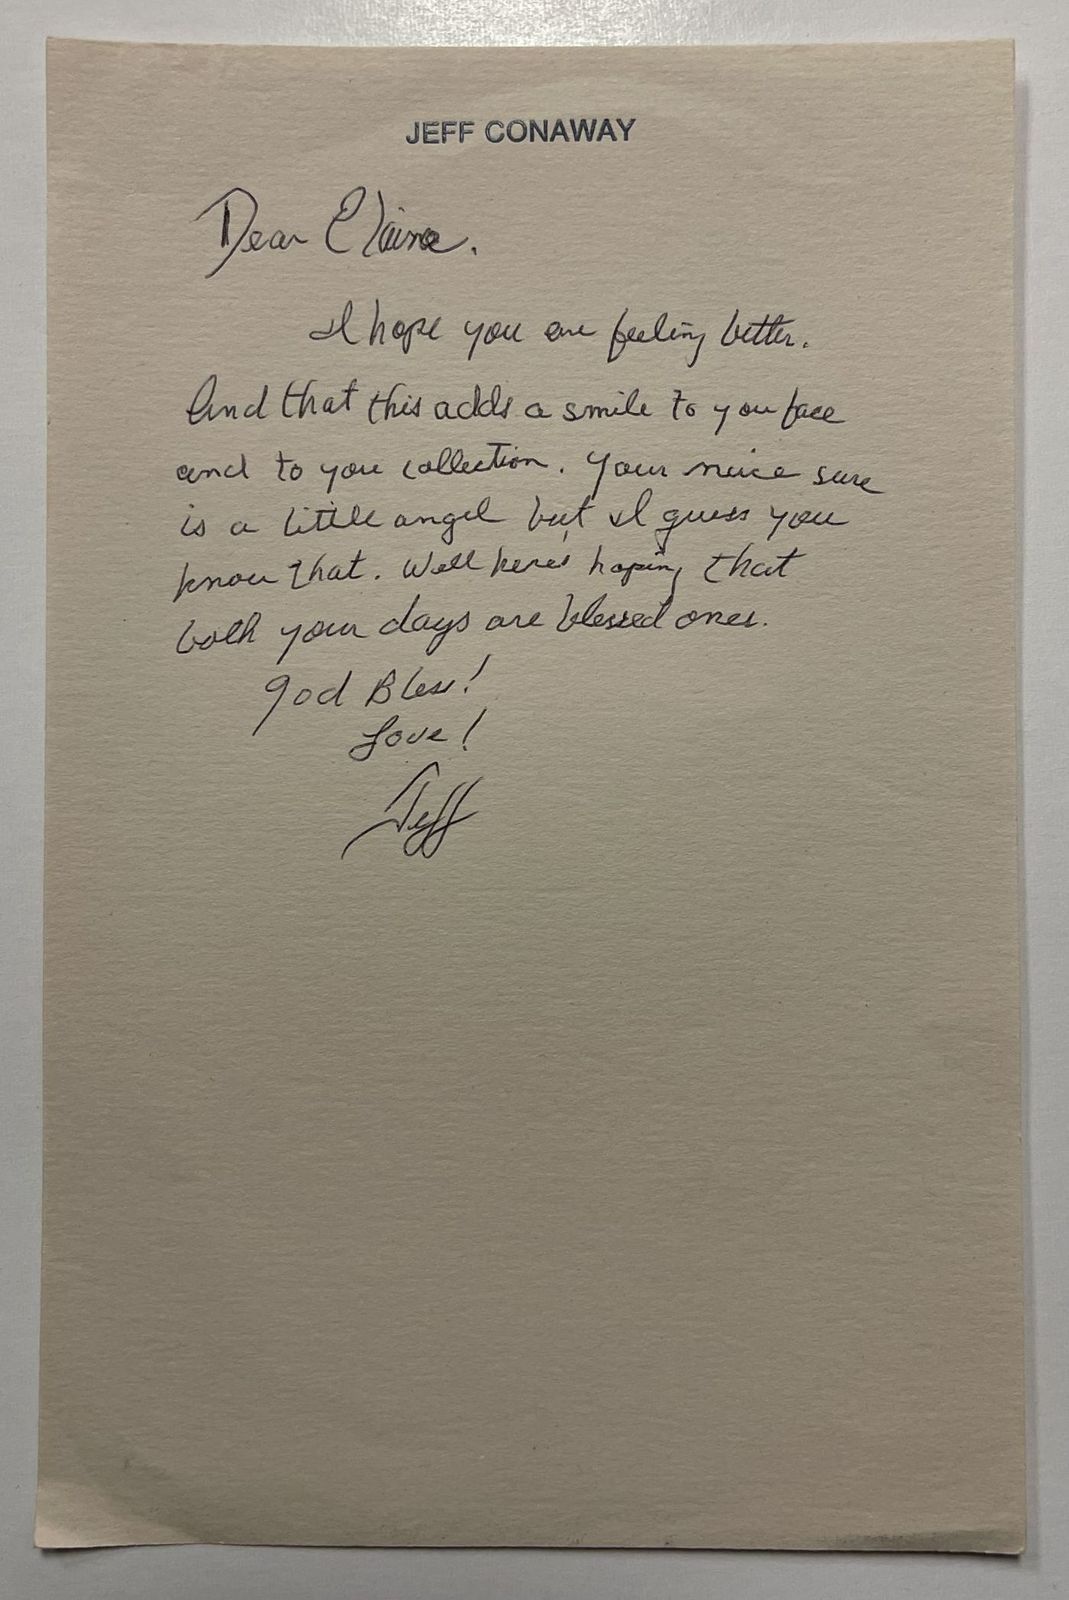 JEFF CONAWAY
Dear Elaine.
I hope you are feeling better.
And that this adds a smile to you face
and to your collection. Your neice sure
is a little angel but I guess you
know that. Well here's hoping that
both your days are blessed ones.
God Bless!
Love!
Jeff